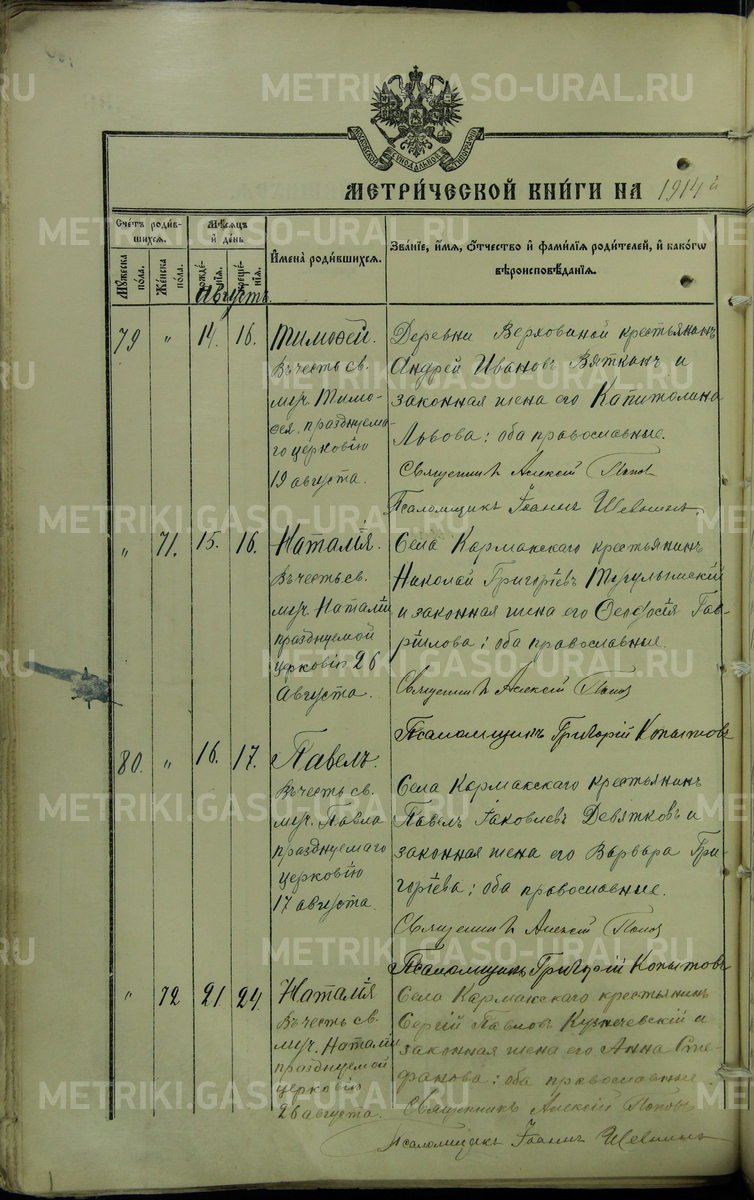 METRIKI.GASO-URAL.RU
МОСКОВСКОЙ СѴНОДАЛЬНОЙ ТИПОГРАФІИ
МЕТРИ́ЧЕСКОЙ КНИ́ГИ НА 1914 й
Сче́тъ роди́вшихся.
Мꙋ́жеска по́ла.
Же́нска по́ла.
Мѣ́сяцъ и де́нь
рожде́нія.
креще́нія.
И҆мена̀ роди́вшихся.
Зва́ніе, и҆́мя, ѻ҆́тчество и҆ фами́лія роди́телей, и҆ како́гѡ
вѣроисповѣ́данія.
Августъ
79 " 14. 16. Тимоѳей.
Въ честь св.
муч. Тимо-
ѳея, празднуема-
го церковію
19 августа.
Деревни Верховиной крестьянинъ
Андрей Ивановъ Вяткинъ и
законная жена его Капитолина
Львова; оба православные.
Священникъ Алексій Попов
Псаломщикъ Іоаннъ Шевнинъ
" 71. 15. 16. Наталія.
Въ честь св.
муч. Наталіи
празднуемой
церковію 26
Августа.
Села Кармакскаго крестьянинъ
Николай Григоріевъ Тугулымскій
и законная жена его Ѳеодосія Гав-
ріилова; оба православные.
Священникъ Алексій Попов
Псаломщикъ Григорій Копытовъ
80. " 16. 17. Павелъ.
Въ честь св.
муч. Павла
празднуемаго
церковію
17 августа.
Села Кармакскаго крестьянинъ
Павелъ Іаковлевъ Девятковъ и
законная жена его Варвара Гри-
горіева; оба православные.
Священникъ Алексій Попов
Псаломщикъ Григорій Копытовъ
" 72 21. 24. Наталія
Въ честь св.
муч. Наталіи
празднуемой
церковію
26 августа.
Села Кармакскаго крестьянинъ
Сергій Павловъ Кузнечевскій и
законная жена его Анна Сте-
фанова; оба православные.
Священникъ Алексій Поповъ
Псаломщикъ Іоаннъ Шевнинъ